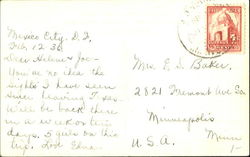 Mexico City, D.F.
Feb. 12 36
Dear Helen & Joe -
You've no idea the
sights I have seen
since leaving
Will be back there
in a week or ten
days. 5 gals on this
trip. Love Edna
Mrs. E. S. Baker
2821 Fremont Ave So.
Minneapolis
Minn
U.S.A.